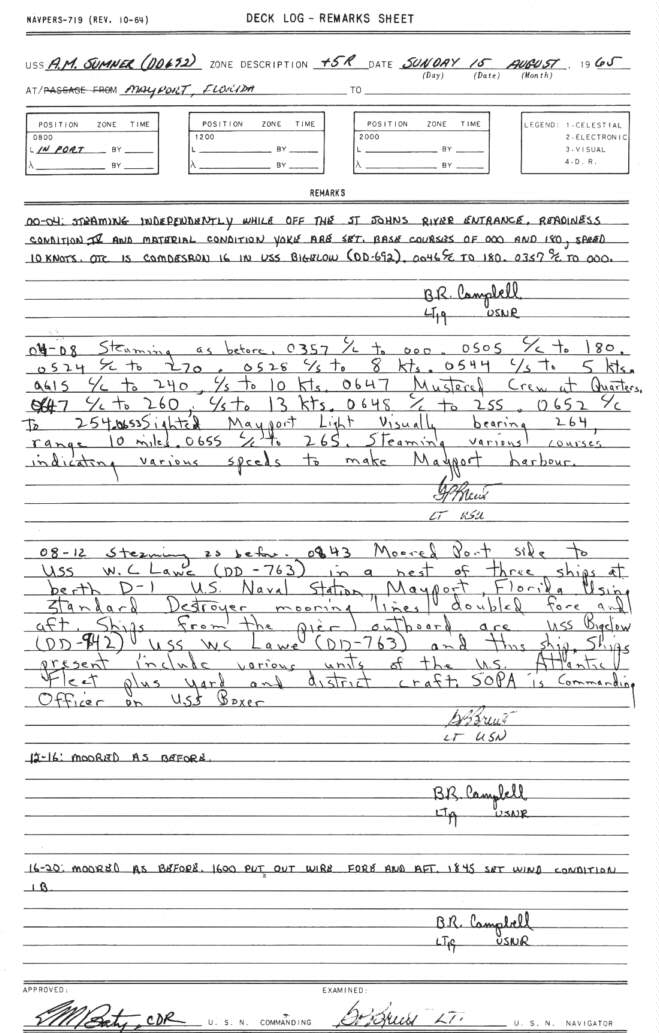 NAVPERS-719 (REV. 10-64) DECK LOG – REMARKS SHEET
USS A.M. SUMNER (DD692) ZONE DESCRIPTION +5R DATE SUNDAY 15 AUGUST, 1965
(Day) (Date) (Month)
AT/PASSAGE FROM MAYPORT, FLORIDA TO
POSITION ZONE TIME POSITION ZONE TIME POSITION ZONE TIME LEGEND: 1-CELESTIAL
0800 1200 2000 2-ELECTRONIC
L IN PORT BY L BY L BY 3-VISUAL
λ BY λ BY λ BY 4-D.R.
REMARKS
00-04: STEAMING INDEPENDENTLY WHILE OFF THE ST JOHNS RIVER ENTRANCE. READINESS
CONDITION IV AND MATERIAL CONDITION YOKE ARE SET. BASE COURSES OF 000 AND 180, SPEED
10 KNOTS. OTC IS COMDESRON 16 IN USS BIGELOW (DD-692). 0046 C/C TO 180. 0357 C/C TO 000.
B.R. Campbell
LTJG USNR
04-08 Steaming as before. 0357 C/C to 000. 0505 C/C to 180.
0524 C/C to 270. 0528 C/S to 8 kts. 0544 C/S to 5 kts.
0615 C/C to 240, C/S to 10 kts. 0647 Mustered Crew at Quarters,
0647 C/C to 260, C/S to 13 kts. 0648 C/C to 255. 0652 C/C
to 254. 0653 Sighted Mayport Light Visually bearing 264,
range 10 miles. 0655 C/C to 265. Steaming various courses
indicating various speeds to make Mayport harbour.
LT USN
08-12 Steaming as before. 0843 Moored Port side to
USS W.C Lawe (DD-763) in a nest of three ships at
berth D-1 U.S. Naval Station, Mayport, Florida Using
Standard Destroyer mooring lines doubled fore and
aft. Ships from the pier outboard are USS Bigelow
(DD-942) USS W.C Lawe (DD-763) and this ship. Ships
present include various units of the U.S. Atlantic
Fleet plus yard and district craft. SOPA is Commanding
Officer on USS Boxer
LT USN
12-16: MOORED AS BEFORE.
B.R. Campbell
LTJG USNR
16-20: MOORED AS BEFORE. 1600 PUT OUT WIRE FORE AND AFT. 1845 SET WIND CONDITION
1B
B.R. Campbell
LTJG USNR
APPROVED: EXAMINED:
CDR U. S. N. COMMANDING LT. U. S. N. NAVIGATOR